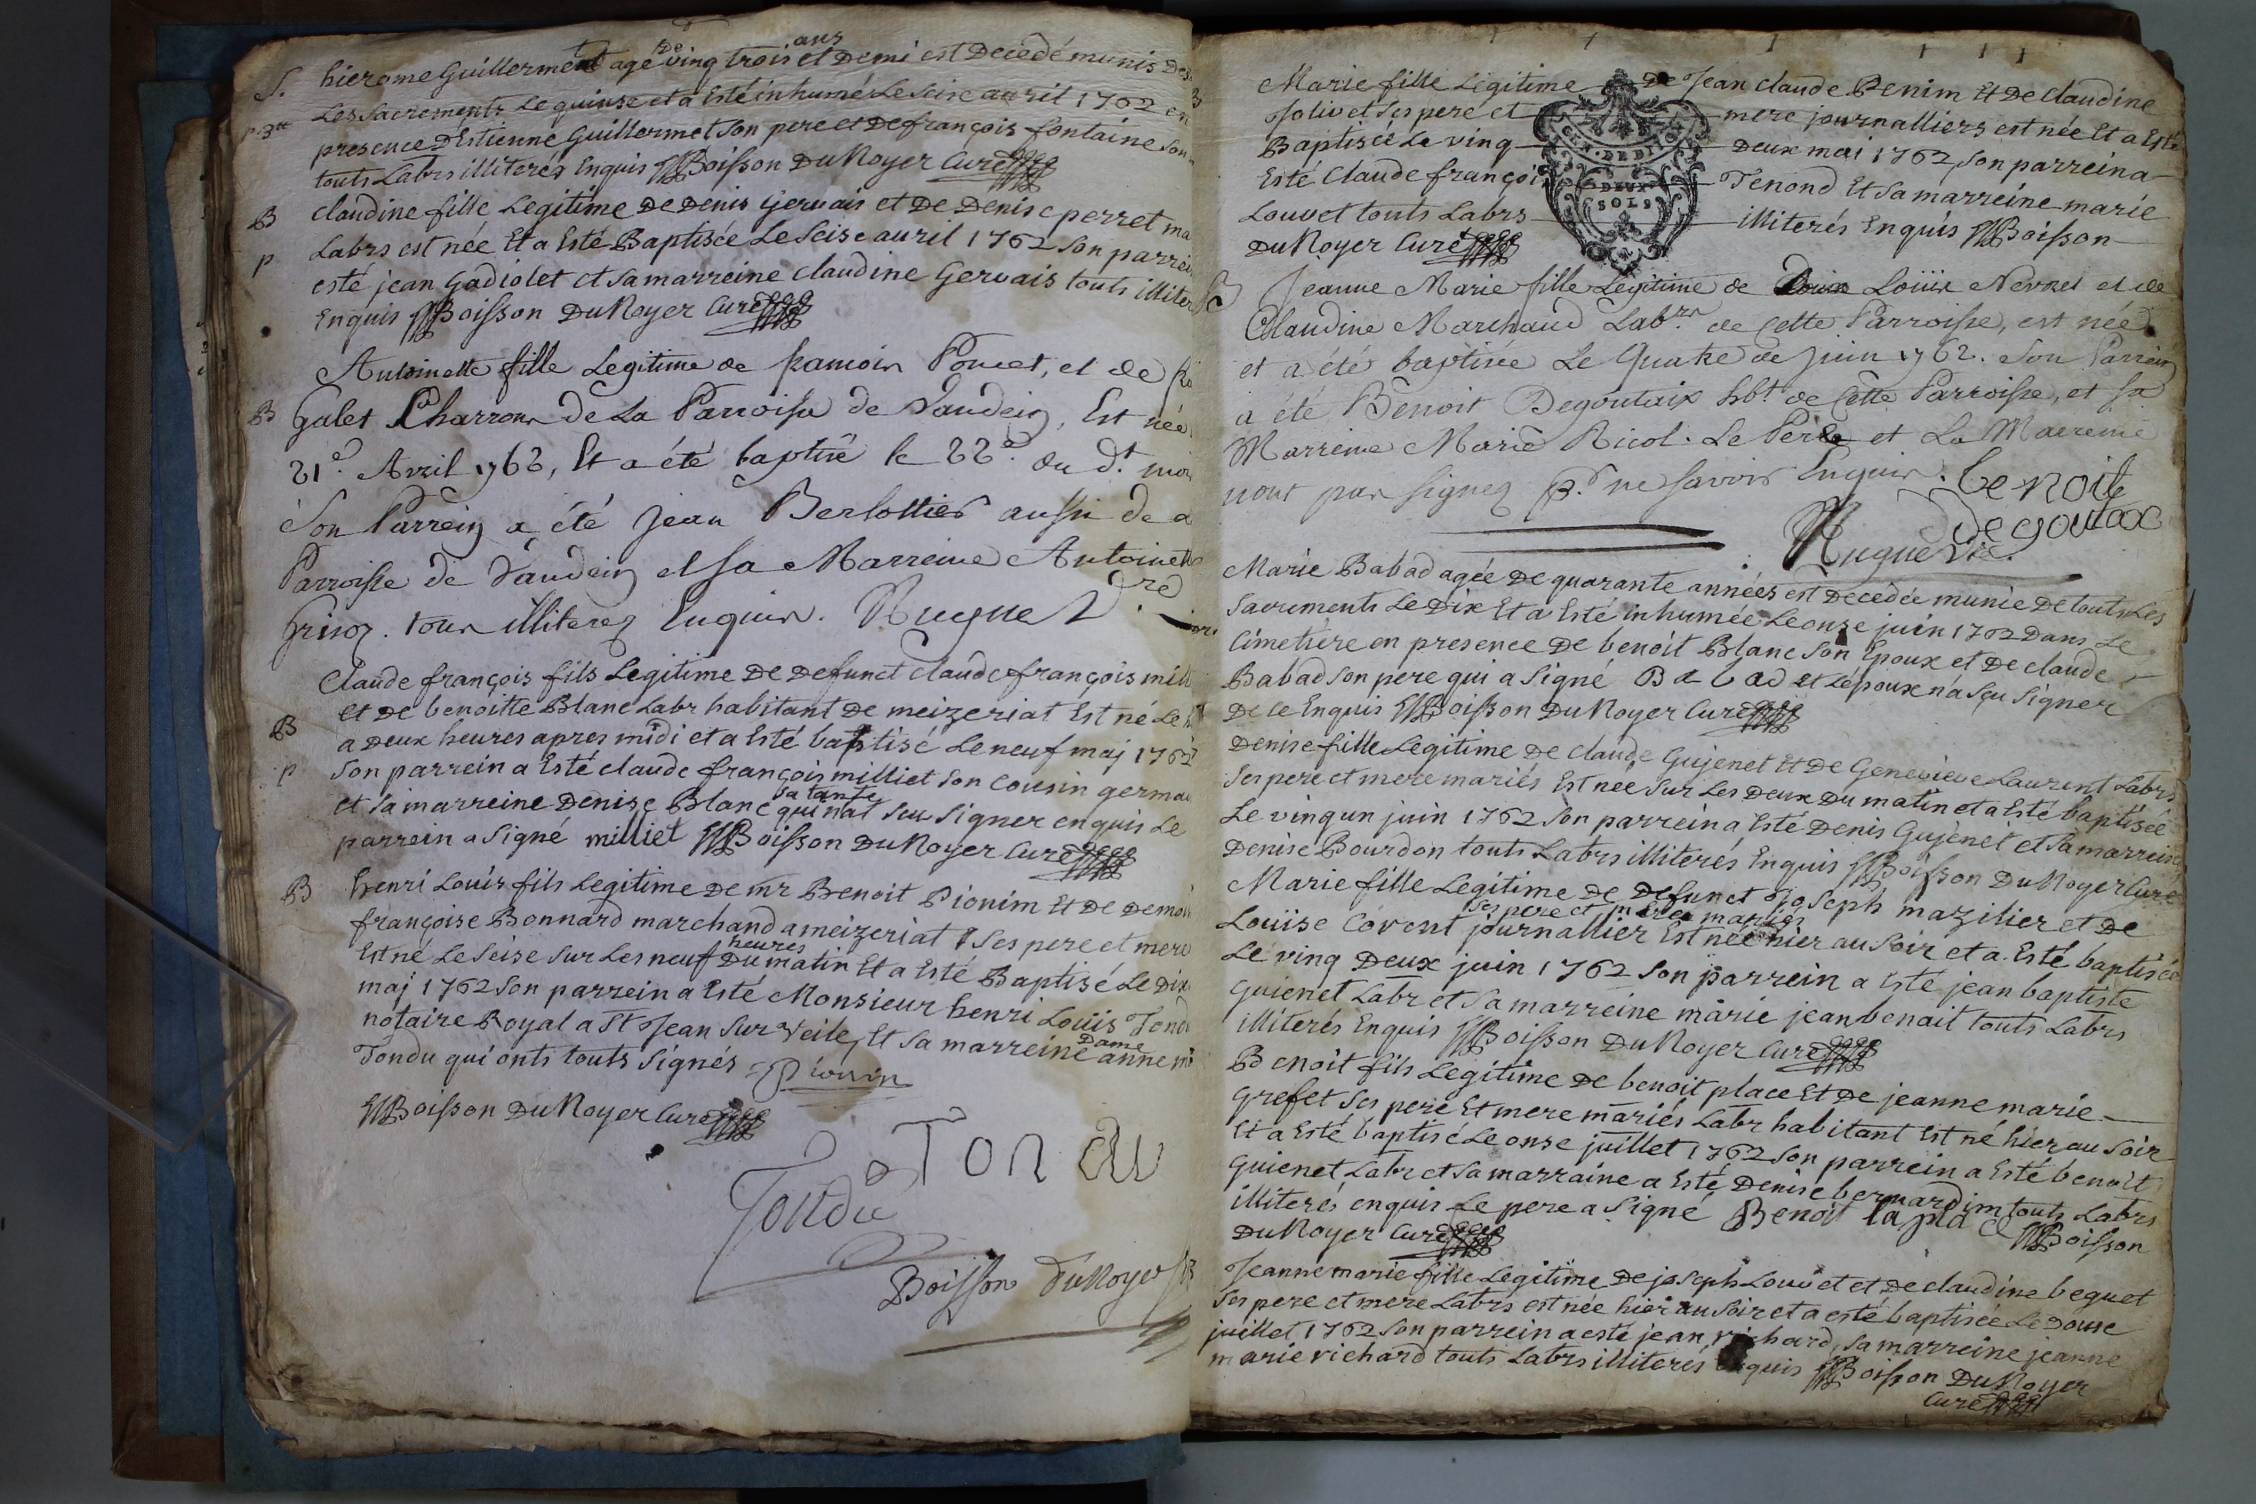 S. hierome Guillermet agé De vinq trois ans et Demi est Decedé munis De
Les Sacrements Le quinse et a Esté inhumé Le Seise auril 1762 en
presence D'Estienne Guillermet Son pere et De françois fontaine Son
touts Labrs illiterés Enquis Boisson DuNoyer Curé
B claudine fille Legitime De Denis Gervais et De Denise perret ma
p Labrs est née Et a Esté Baptisée Le Seise auril 1762 Son parrei
esté jean Gadiolet et Sa marreine claudine Gervais touts illiter
Enquis Boisson DuNoyer Curé
Antoinette fille Legitime de francois Poncet, et de
B Galet Charrons de La Parroisse de Vandein, Est née
21e. Avril 1762, Et a été baptisé le 22e. du d.t moi
Son Parrein a été Jean Berlottier aussi de
Parroisse de Vandein et sa Marreine Antoinett
tous illiterez Enquis. Nugue
Claude françois fils Legitime De Defunct claude françois mill
et De benoitte Blanc Labr habitant De meizeriat Est né Le
B a Deux heures apres midi et a Esté baptisé Le neuf maj 1762
p Son parrein a Esté claude françois milliet Son Cousin germai
et Sa marreine Denise Blanc sa tante qui n'at Seu Signer enquis Le
parrein a Signé milliet Boisson DuNoyer Curé
B henri Louis fils Legitime De mr Benoit Pionim Et De Demoi
françoise Bonnard marchand a meizeriat Ses pere et mere
Est né Le Seise Sur Les neuf heures Du matin Et a Esté Baptisé Le Dix
maj 1762 Son parrein a Esté Monsieur henri Louis Tondu
notaire Royal a St Jean Sur Veile, Et Sa marreine Dame anne
Tondu qui onts touts Signés Pionin
Boisson DuNoyer Curé
Tondu
Tondu
Boisson DuNoyer
Marie fille Legitime De Jean claude Penim Et De Claudine
Jolivet Ses pere et mere journalliers est née Et a Esté
GEN. DE DIJON
DEUX
SOLS
Baptisée Le vinq Deux mai 1762, Son parrein a
Esté Claude françois Tenond Et Sa marreine marie
Louvet touts Labrs illiterés Enquis Boisson
DuNoyer Curé
Jeanne Marie fille Legitime de Loüis Nevoret et de
Claudine Marchand Labrs de Cette Parroisse, est née
et a été baptisée Le Quatre de juin 1762. Son Parrein
a été Benoit Degoutaix hbt. de Cette Parroisse, et sa
Marreine Marie Nicol. Le Pere et La Marreine
n'ont pas Signez pr. ne Savoir Enquis. benoit
degoutax
Nugue Vic.
Marie Babad agée De quarante années est Decedée munie De touts Les
Sacrements Le Dix Et a Esté inhumée Le onse juin 1762 Dans Le
Cimetiere en presence De benoit Blanc Son Epoux et De claude
Babad Son pere qui a Signé Babad et L'époux n'a Sçu Signer
De ce Enquis Boisson DuNoyer Curé
Denise fille Legitime De claude Gujenet Et De Genevieve Laurent Labrs
Ses pere et mere mariés Est née Sur Les Deux Du matin et a Esté baptisée
Le vinq un juin 1762 Son parrein a Esté Denis Gujenet et Sa marreine
Denise Bourdon touts Labrs illiterés Enquis Boisson DuNoyer Curé
Marie fille Legitime De Defunct Joseph mazilier et De
Louise Covent ses pere et mere mariés journallier Est née hier au Soir et a Esté baptisée
Le vinq Deux juin 1762 Son parrein a Esté jean baptiste
Guienet Labr et Sa marreine marie jean benait touts Labrs
illiterés Enquis Boisson DuNoyer Curé
Benoit fils Legitime De benoit place Et De jeanne marie
Grefet Ses pere Et mere mariés Labr habitant Est né hier au Soir
Et a Esté baptisé Le onse juillet 1762 Son parrein a Esté benoit
Guienet Labr et Sa marraine a Esté Denise bernardim touts Labrs
illiterés enquis Le pere a Signé Benoit la place Boisson
DuNoyer Curé
Jeanne marie fille Legitime De joseph Louvet et De claudine beguet
Ses pere et mere Labrs est née hier au Soir et a esté baptisée Le Douse
juillet 1762 Son parrein a esté jean richard, Sa marreine jeanne
marie richard touts Labrs illiterés Enquis Boisson DuNoyer
Curé